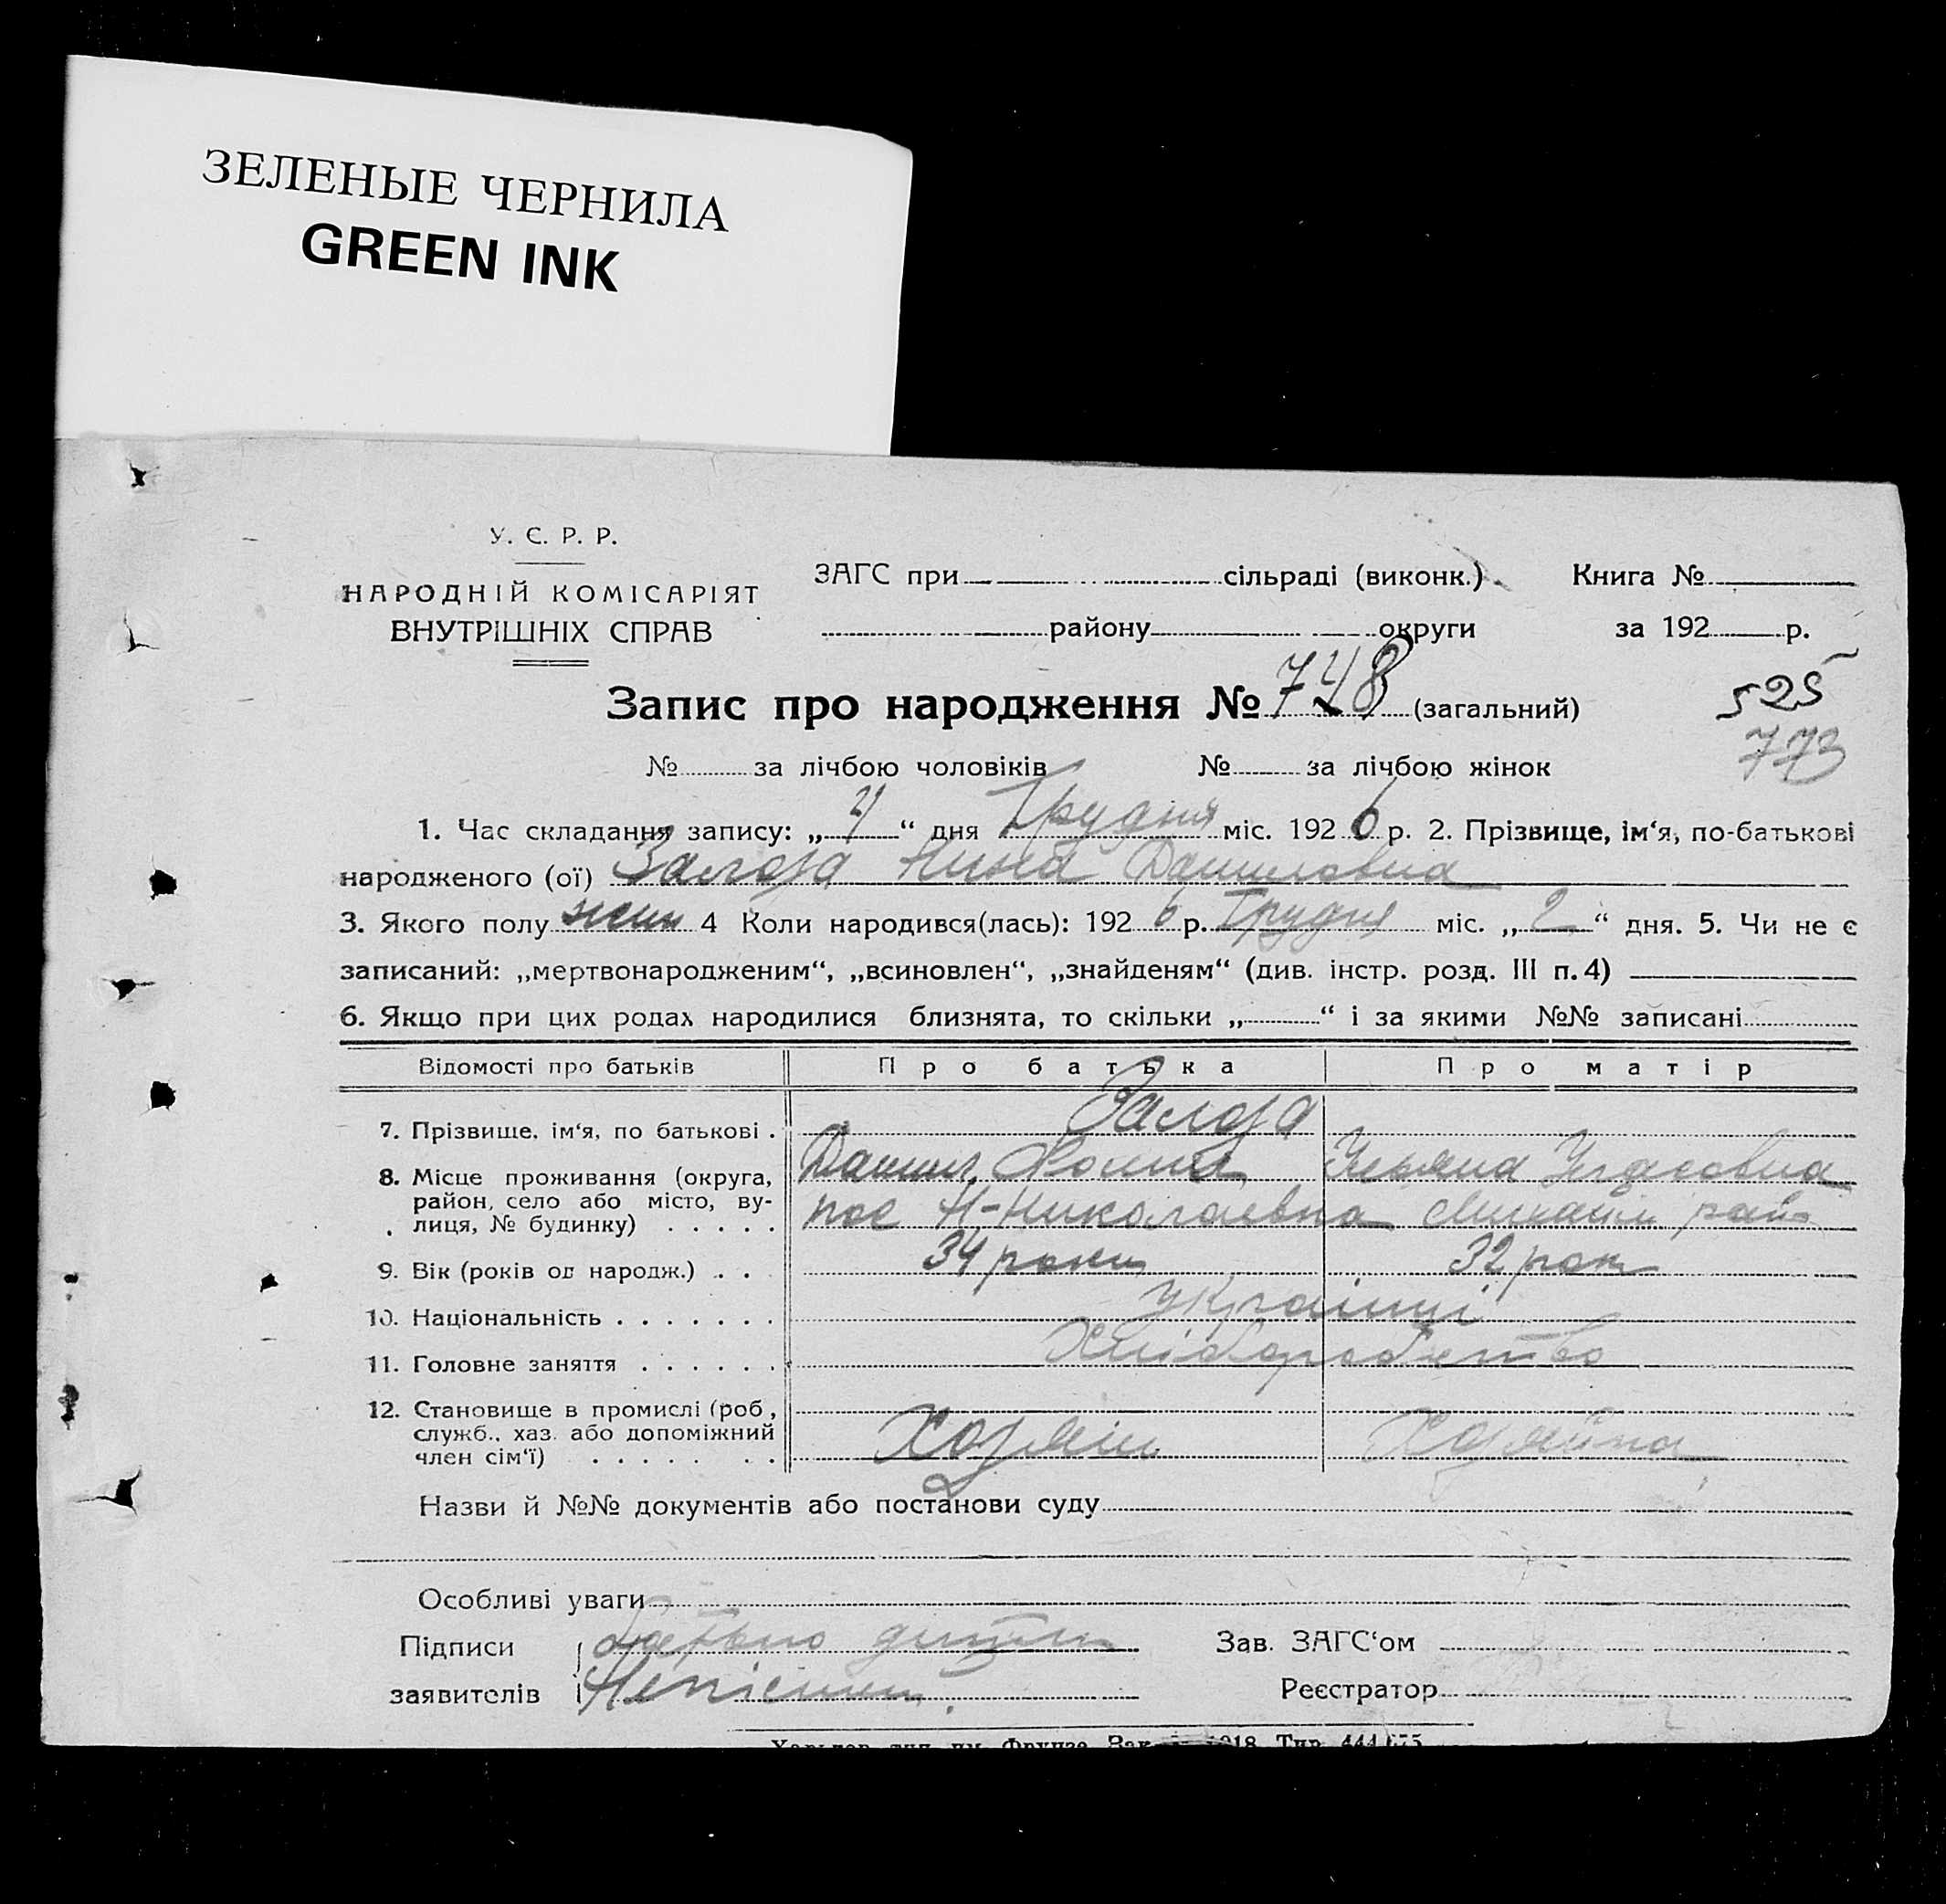 ЗЕЛЕНЫЕ ЧЕРНИЛА
GREEN INK
У. Є. Р. Р.
НАРОДНІЙ КОМІСАРІЯТ
ВНУТРІШНІХ СПРАВ
ЗАГС при сільраді (виконк.) Книга №
району округи за 192 р.
Запис про народження № 748 (загальний) 525
№ за лічбою чоловіків № за лічбою жінок 773
1. Час складання запису: „ 4 “ дня Грудня міс. 192 6 р. 2. Прізвище, ім‘я, по-батькові
народженого (ої) Залоза Нина Даниловна
3. Якого полу жин 4 Коли народився(лась): 192 6 р. Грудня міс. „ 2 “ дня. 5. Чи не є
записаний: „мертвонародженим“, „всиновлен“, „знайденям“ (див. інстр. розд. III п. 4)
6. Якщо при цих родах народилися близнята, то скільки „ “ і за якими №№ записані
Відомості про батьків Про батька Про матір
Залоза
7. Прізвище, ім‘я, по батькові .
Данил Ульяна
8. Місце проживання (округа,
район, село або місто, ву-
лиця, № будинку) . . . . .
пос Н-Николаевка
9. Вік (років од народж.) . . 34 роки 32 рок
10. Національність . . . . . . . українці
11. Головне заняття . . . . . . Хліборобство
12. Становище в промислі (роб,
служб., хаз. або допоміжний
член сім‘ї) . . . . . . . Хозяин Хозяйка
Назви й №№ документів або постанови суду
Особливі уваги
Підписи Батько дитини Зав. ЗАГС‘ом
заявителів Неписьмен. Реєстратор